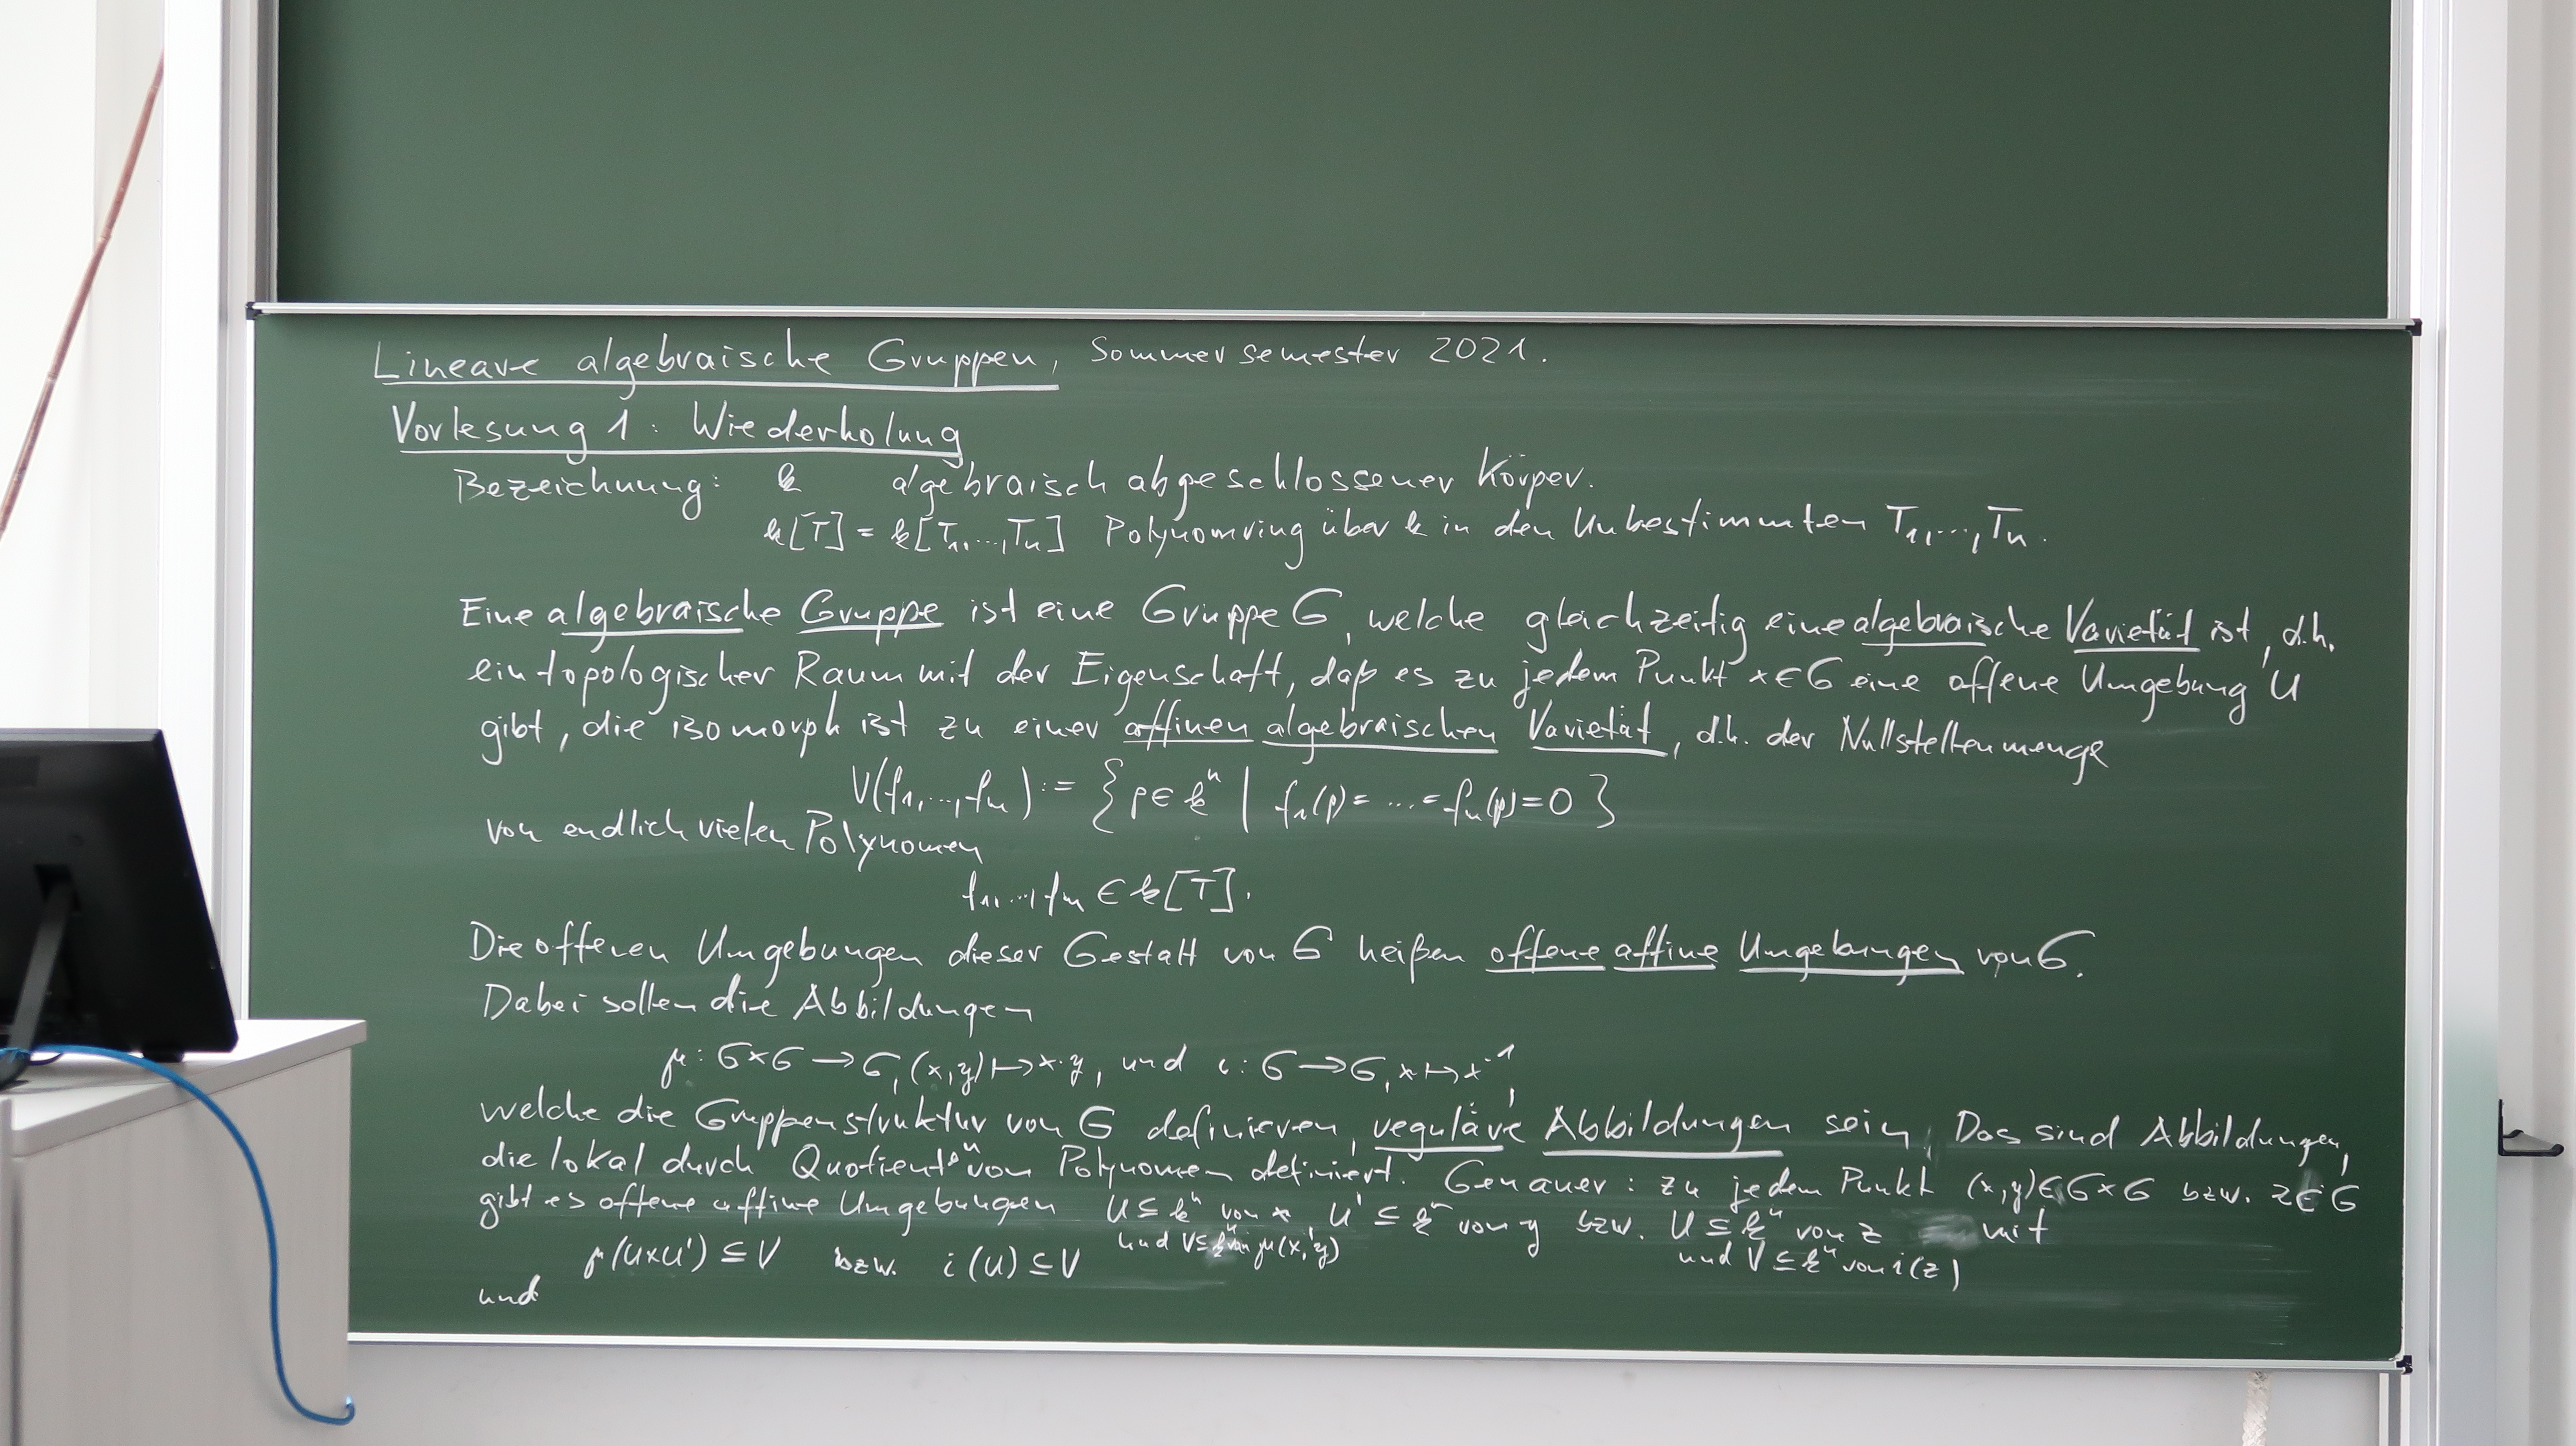 Lineare algebraische Gruppen, Sommersemester 2021.
Vorlesung 1: Wiederholung
Bezeichnung: k algebraisch abgeschlossener Körper.
k[T] = k[T₁,...,Tₙ] Polynomring über k in den Unbestimmten T₁,...,Tₙ.
Eine algebraische Gruppe ist eine Gruppe G, welche gleichzeitig eine algebraische Varietät ist, d.h.
ein topologischer Raum mit der Eigenschaft, daß es zu jedem Punkt x∈G eine offene Umgebung U
gibt, die isomorph ist zu einer affinen algebraischen Varietät, d.h. der Nullstellenmenge
V(f₁,...,fₘ) := {p∈kⁿ | f₁(p)= ... =fₘ(p)=0}
von endlich vielen Polynomen
f₁,...,fₘ ∈ k[T].
Die offenen Umgebungen dieser Gestalt von G heißen offene affine Umgebungen von G.
Dabei sollen die Abbildungen
μ: G×G → G, (x,y) ↦ x·y, und i: G → G, x ↦ x⁻¹,
welche die Gruppenstruktur von G definieren, reguläre Abbildungen sein. Das sind Abbildungen,
die lokal durch Quotienten von Polynomen definiert. Genauer: zu jedem Punkt (x,y)∈G×G bzw. z∈G
gibt es offene affine Umgebungen U⊆kⁿ von x, U'⊆kⁿ von y bzw. U⊆kⁿ von z mit
und V⊆kⁿ von μ(x,y) und V⊆kⁿ von i(z)
μ(U×U')⊆V bzw. i(U)⊆V
und